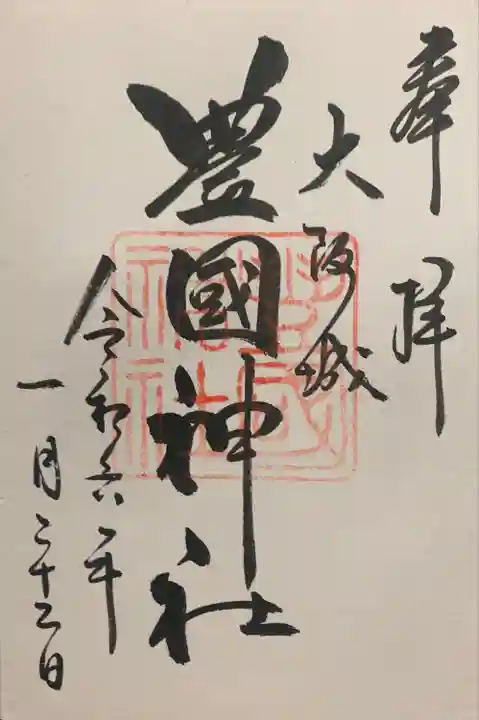 奉拝
大阪城
豊國神社
令和六年
一月二十二日